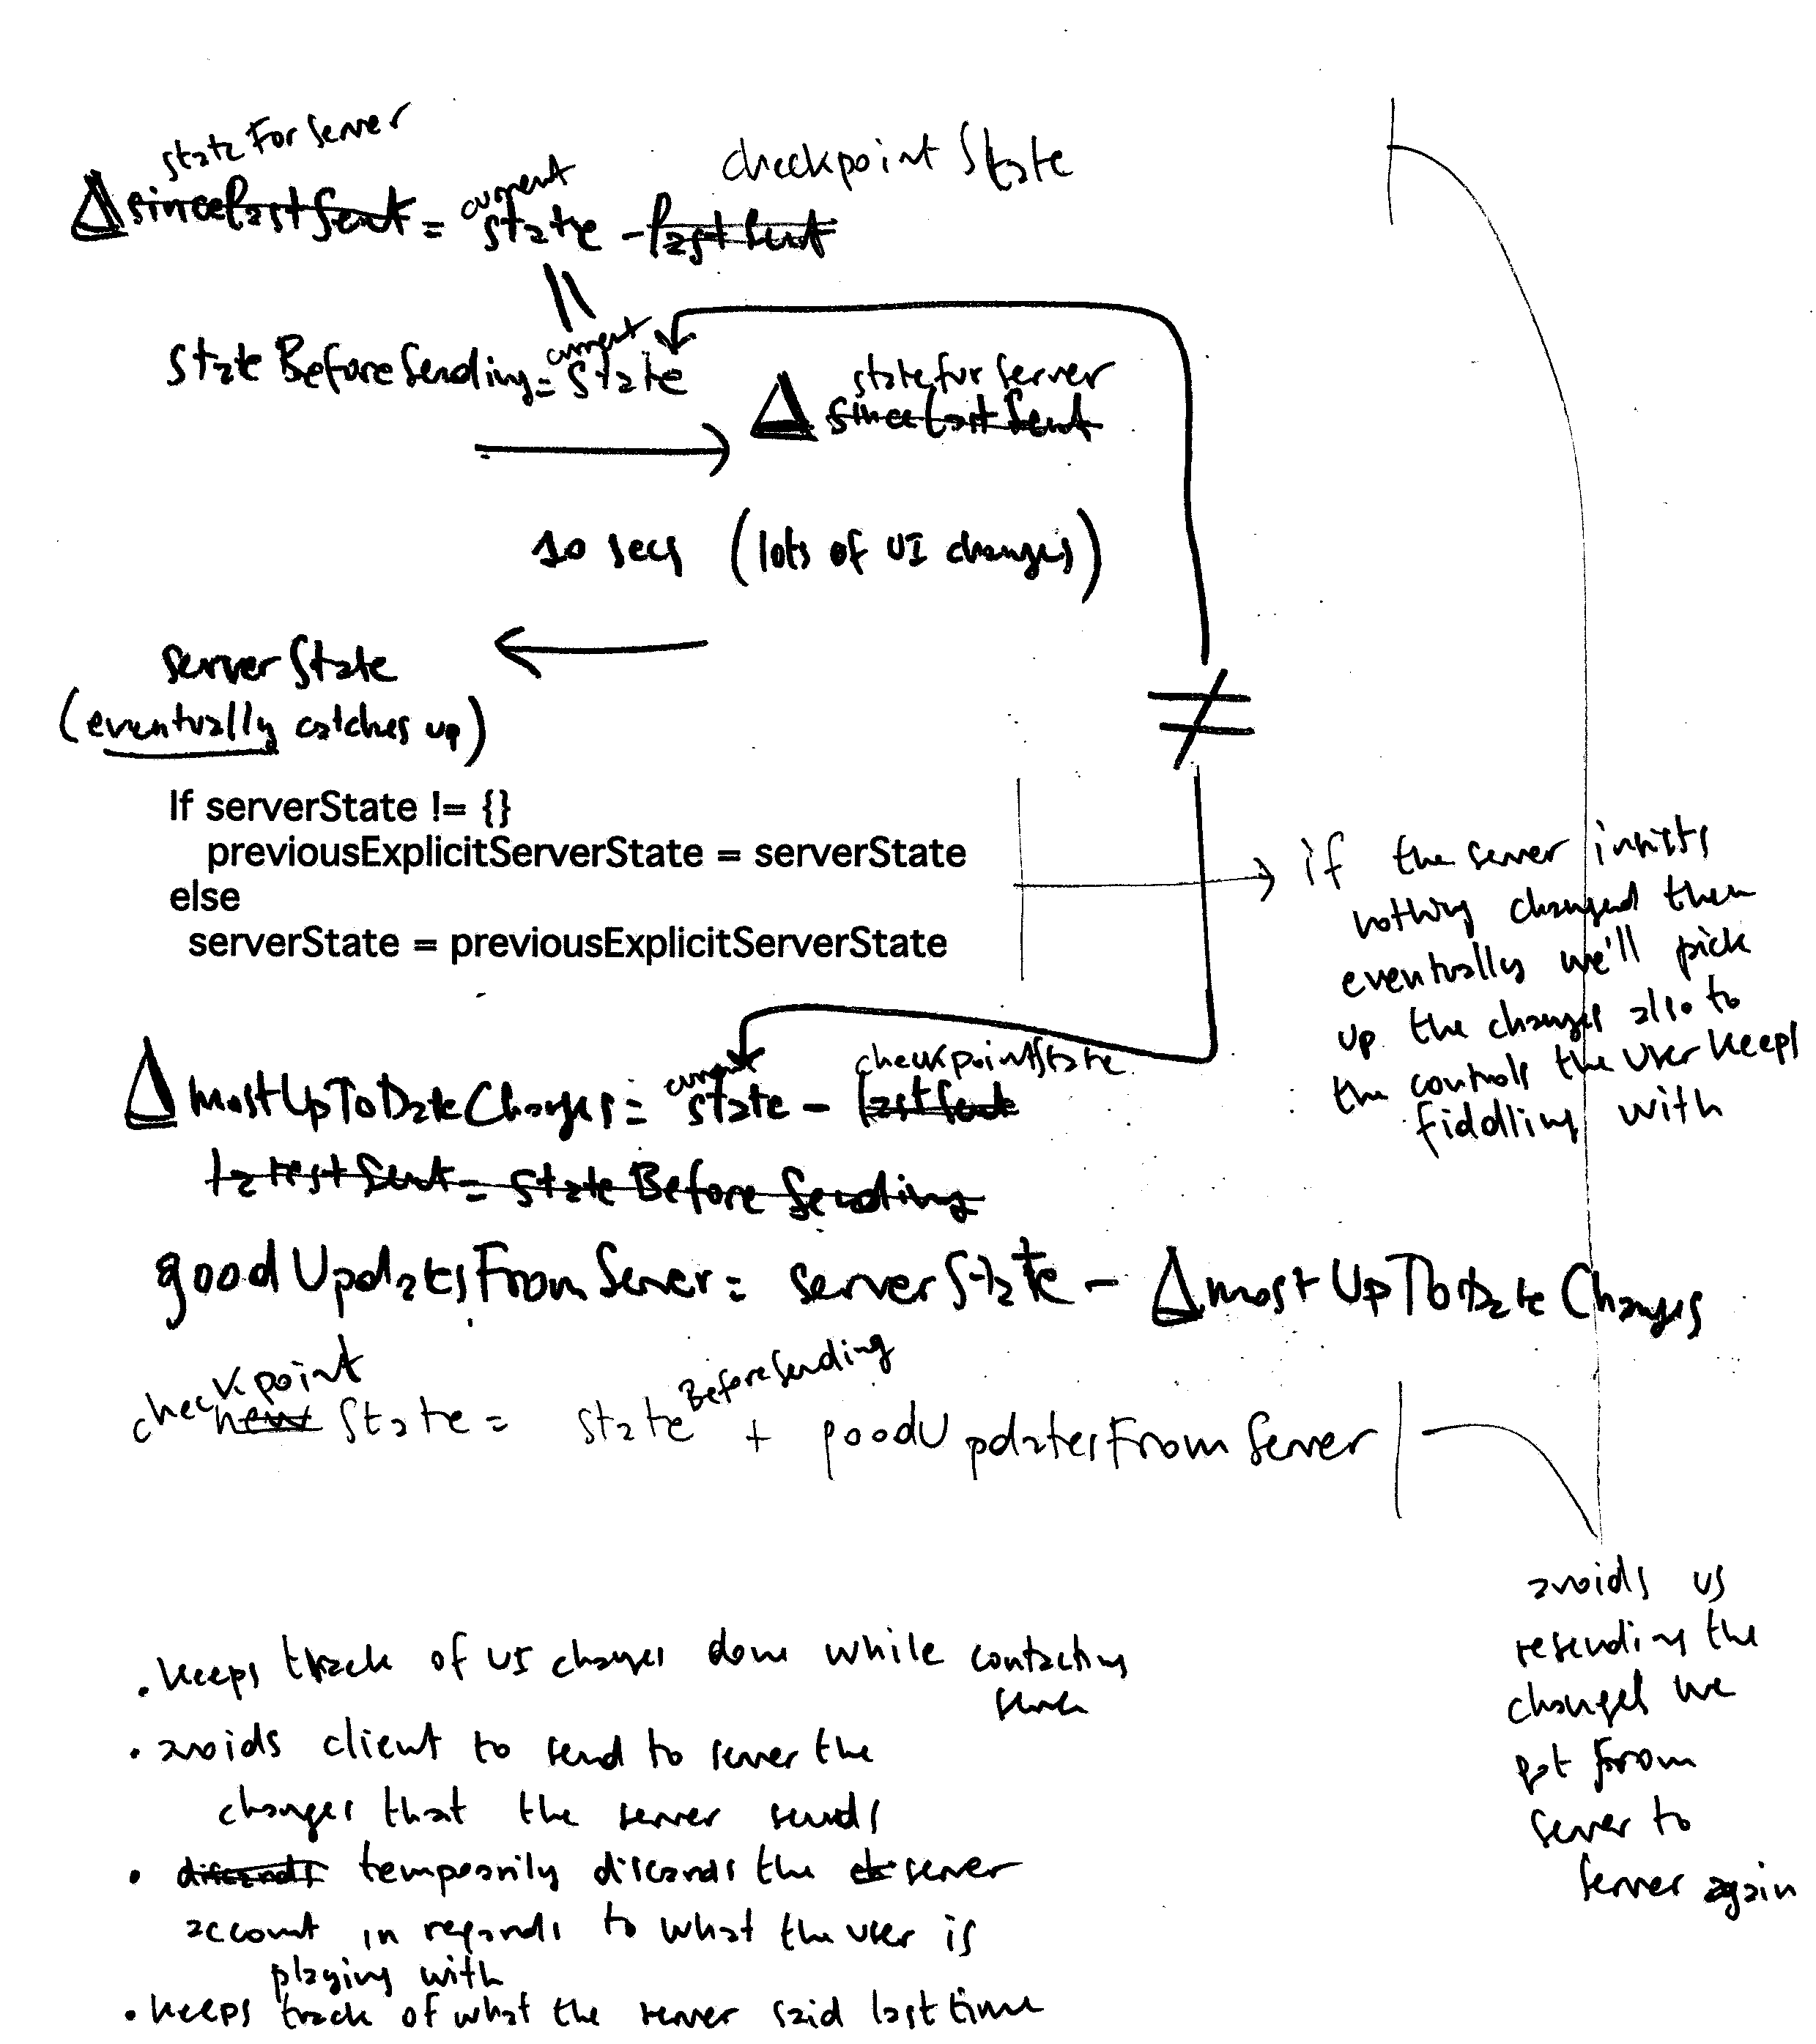 stateForServer
current
checkpointState
Δ sinceLastSent = state - lastSent
=
current
stateBeforeSending = state
stateForServer
Δ sinceLastSent
10 secs (lots of UI changes)
serverState
(eventually catches up)
≠
If serverState != {}
previousExplicitServerState = serverState
else
serverState = previousExplicitServerState
if the server insists
nothing changed then
eventually we'll pick
up the changes also to
the controls the user keeps
fiddling with
current checkpointState
Δ mostUpToDateChanges = state - lastSent
latestSent = stateBeforeSending
goodUpdatesFromServer = serverState - Δ mostUpToDateChanges
checkpoint
new State = stateBeforeSending + goodUpdatesFromServer
avoids us
resending the
changes we
got from
server to
server again
• keeps track of UI changes done while contacting
server
• avoids client to send to server the
changes that the server sends
• discards temporarily discards the server
account in regards to what the user is
playing with
• keeps track of what the server said last time